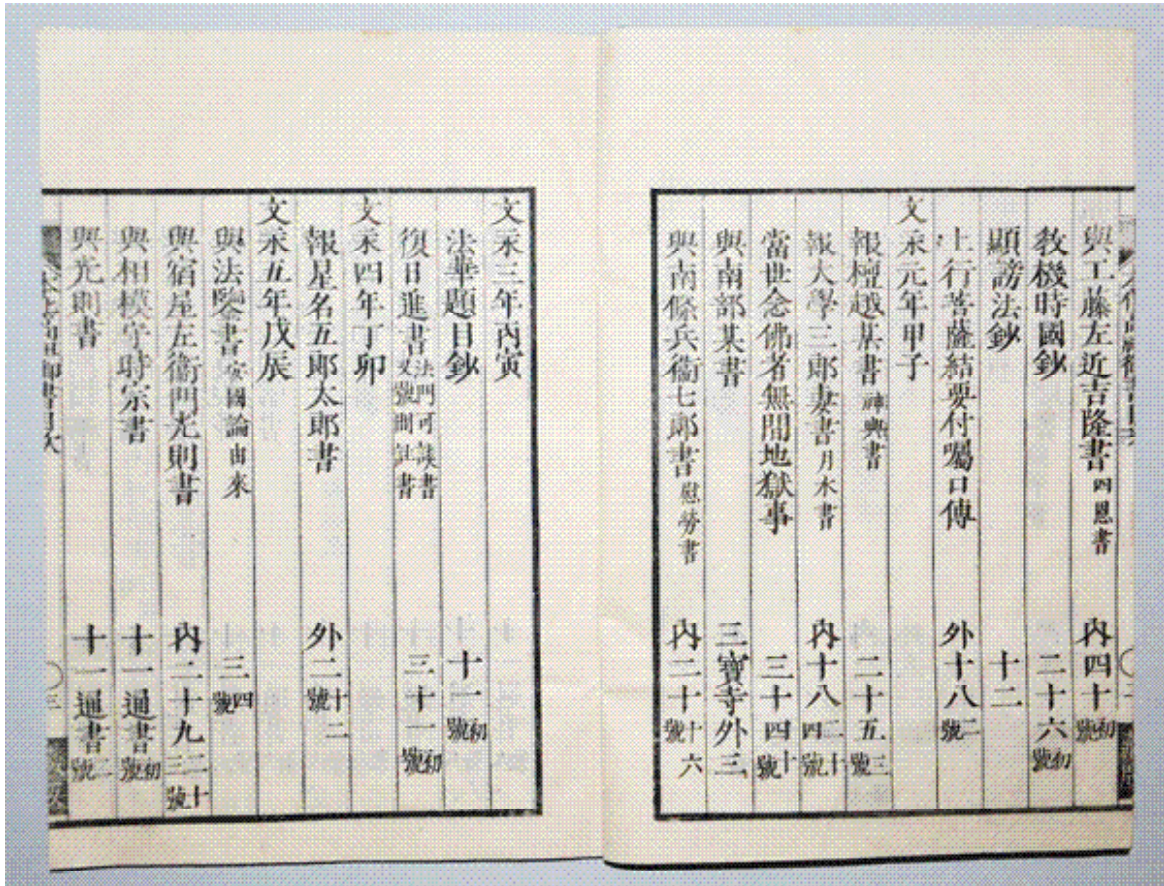 與工藤左近吉隆書 四恩書 内四十 初號
教機時國鈔 二十六 初號
顯謗法鈔 十二
上行菩薩結要付囑口傳 外十八 二號
文永元年甲子
報檀越某書 神輿書 二十五 三號
報大學三郎妻書 月水書 内十八 二十四號
當世念佛者無間地獄事 三十四 十號
與南部某書 三寶寺外三
與南條兵衞七郎書 慰勞書 内二十 十六號
文永三年丙寅
法華題目鈔 十一 初號
復日進書 法門可談書 又號問注書 三十一 初號
文永四年丁卯
報星名五郎太郎書 外二 十二號
文永五年戊辰
與法鑒書 安國論由來 三 四號
與宿屋左衞門光則書 内二十九 二十三號
與相模守時宗書 十一通書 初號
與光則書 十一通書 二號